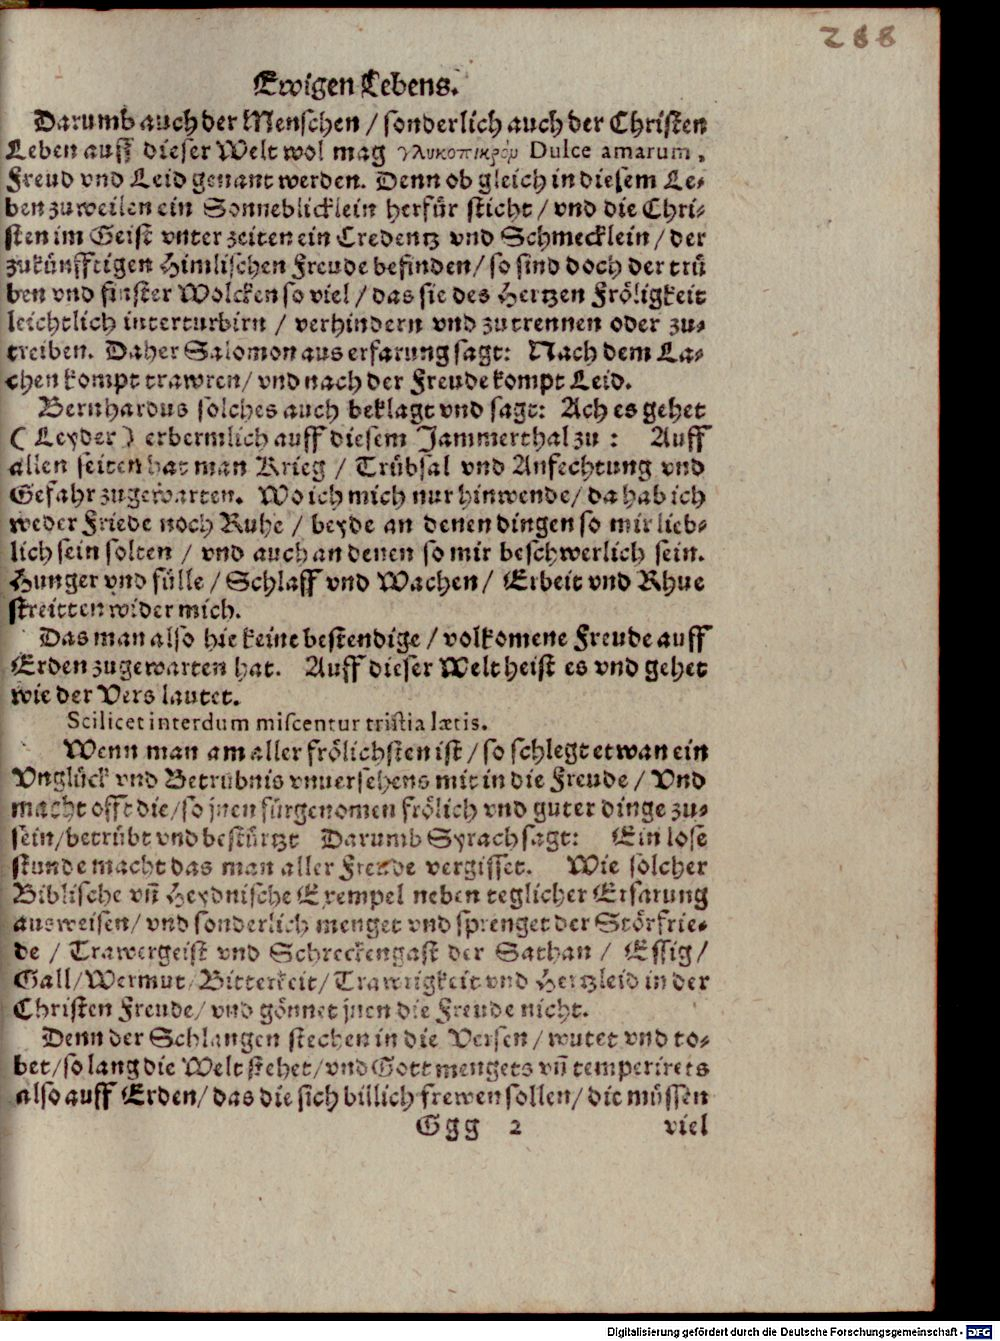 288
Ewigen Lebens.
Darumb auch der Menschen / sonderlich auch der Christen
Leben auff dieser Welt wol mag γλυκοπικρόν Dulce amarum,
Freud vnd Leid genant werden. Denn ob gleich in diesem Le-
ben zuweilen ein Sonneblicklein herfür sticht / vnd die Chri-
sten im Geist vnter zeiten ein Credentz vnd Schmecklein / der
zukünfftigen Himlischen Freude befinden / so sind doch der trü
ben vnd finster Wolcken so viel / das sie des Hertzen Fröligkeit
leichtlich interturbirn / verhindern vnd zutrennen oder zu-
treiben. Daher Salomon aus erfarung sagt: Nach dem La-
chen kompt trawren / vnd nach der Freude kompt Leid.
Bernhardus solches auch beklagt vnd sagt: Ach es gehet
( Leyder ) erbermlich auff diesem Jammerthal zu : Auff
allen seiten hat man Krieg / Trübsal vnd Anfechtung vnd
Gefahr zugewarten. Wo ich mich nur hinwende / da hab ich
weder Friede noch Ruhe / beyde an denen dingen so mir lieb-
lich sein solten / vnd auch an denen so mir beschwerlich sein.
Hunger vnd fülle / Schlaff vnd Wachen / Erbeit vnd Rhue
streitten wider mich.
Das man also hie keine bestendige / volkomene Freude auff
Erden zugewarten hat. Auff dieser Welt heist es vnd gehet
wie der Vers lautet.
Scilicet interdum miscentur tristia lætis.
Wenn man am aller frölichsten ist / so schlegt etwan ein
Vnglück vnd Betrübnis vnuersehens mit in die Freude / Vnd
macht offt die / so jnen fürgenomen frölich vnd guter dinge zu-
sein / betrübt vnd bestürtzt Darumb Syrach sagt: Ein böse
stunde macht das man aller Freude vergisset. Wie solcher
Biblische vn̄ Heydnische Exempel neben teglicher Erfarung
ausweisen / vnd sonderlich menget vnd sprenget der Störfrie-
de / Trawergeist vnd Schreckengast der Sathan / Essig /
Gall / Wermut / Bitterkeit / Trawrigkeit vnd Hertzleid in der
Christen Freude / vnd gönnet jnen die Freude nicht.
Denn der Schlangen stechen in die Versen / wutet vnd to-
bet / so lang die Welt stehet / vnd Gott mengets vn̄ temperirets
also auff Erden / das die sich billich frewen sollen / die müssen
Ggg 2 viel
Digitalisierung gefördert durch die Deutsche Forschungsgemeinschaft - DFG